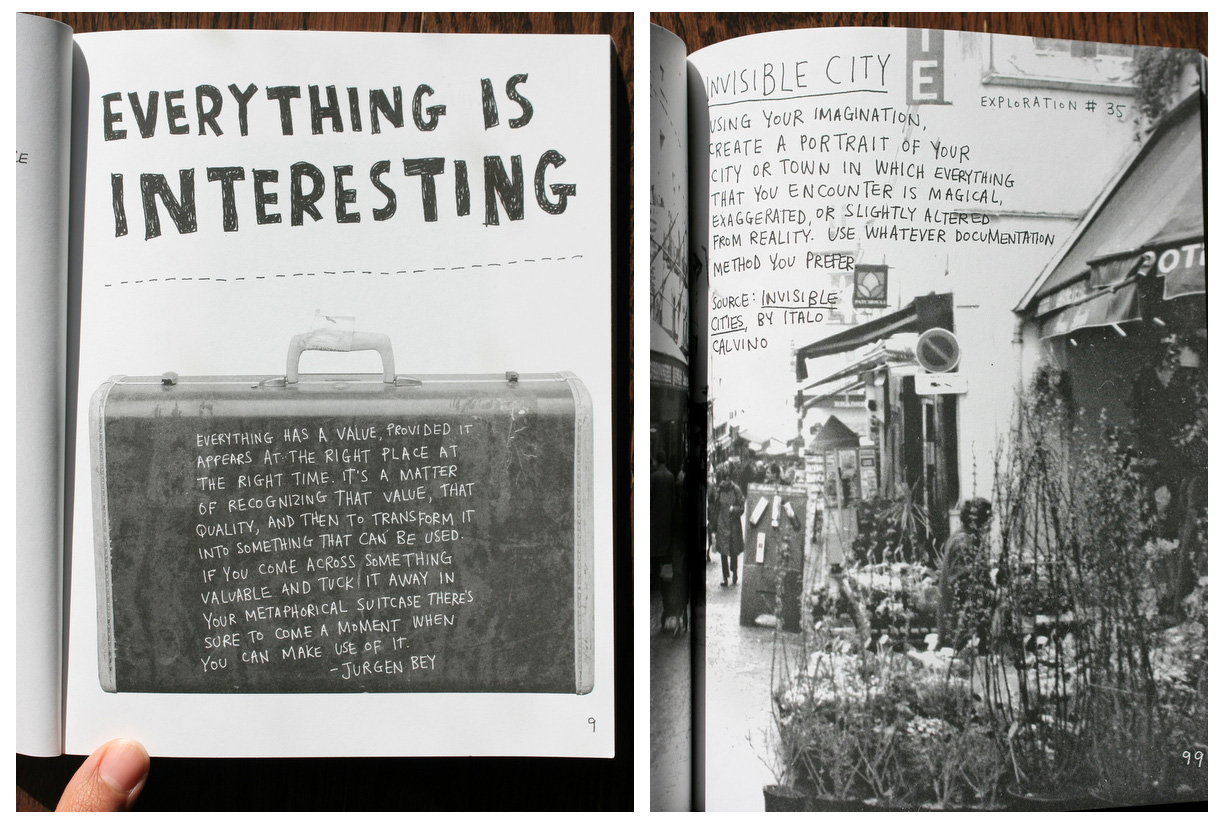 EVERYTHING IS
INTERESTING
EVERYTHING HAS A VALUE, PROVIDED IT
APPEARS AT THE RIGHT PLACE AT
THE RIGHT TIME. IT'S A MATTER
OF RECOGNIZING THAT VALUE, THAT
QUALITY, AND THEN TO TRANSFORM IT
INTO SOMETHING THAT CAN BE USED.
IF YOU COME ACROSS SOMETHING
VALUABLE AND TUCK IT AWAY IN
YOUR METAPHORICAL SUITCASE THERE'S
SURE TO COME A MOMENT WHEN
YOU CAN MAKE USE OF IT.
-JURGEN BEY
9
INVISIBLE CITY
EXPLORATION # 35
USING YOUR IMAGINATION,
CREATE A PORTRAIT OF YOUR
CITY OR TOWN IN WHICH EVERYTHING
THAT YOU ENCOUNTER IS MAGICAL,
EXAGGERATED, OR SLIGHTLY ALTERED
FROM REALITY. USE WHATEVER DOCUMENTATION
METHOD YOU PREFER
SOURCE: INVISIBLE
CITIES, BY ITALO
CALVINO
PATCHOULI
POTI
99